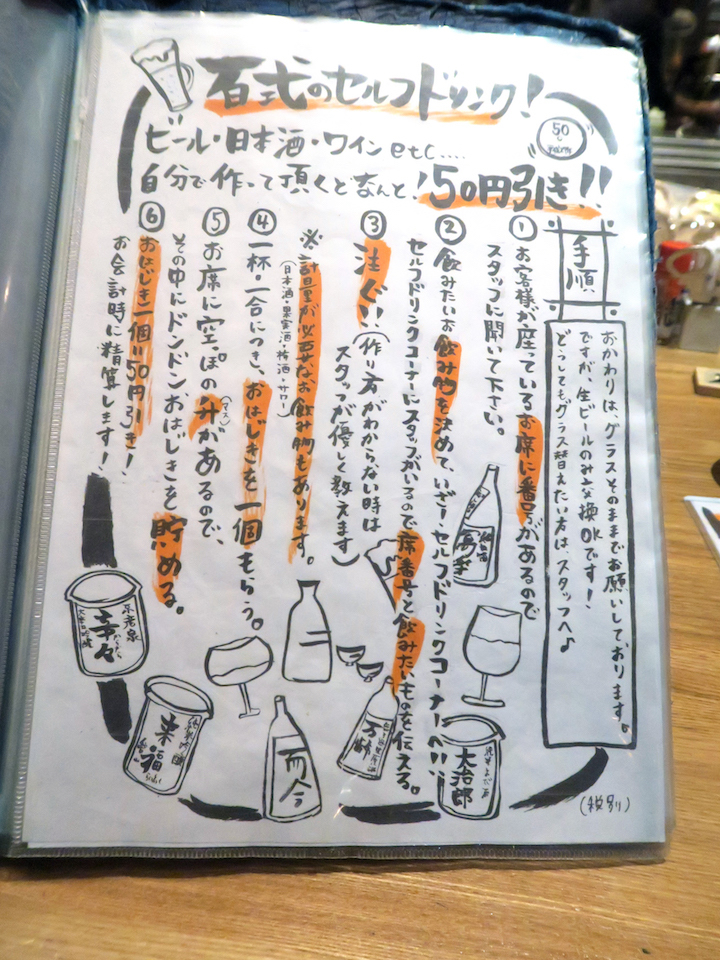 百式のセルフドリンク!
ビール・日本酒・ワインetc....
自分で作って頂くとなんと!50円引き!!
50
手順
おかわりは、グラスそのままでお願いしております。
ですが、生ビールのみ交換OKです!
どうしてもグラス替えたい方は、スタッフへ♪
①お客様が座っているお席に番号があるので
スタッフに聞いて下さい。
②飲みたいお飲み物を決めて、いざ!セルフドリンクコーナーへ!!
セルフドリンクコーナーにスタッフがいるので席番号と飲みたいものを伝える。
③注ぐ!!(作り方がわからない時は
スタッフが優しく教えます)
※計量が必要なお飲み物もあります。
(日本酒・果実酒・梅酒・サワー)
④一杯・一合につき、おはじきを一個もらう。
⑤お席に空っぽの升(マス)があるので、
その中にドンドン、おはじきを貯める。
⑥おはじき一個=50円引き!
お会計時に精算します!
不老泉
辛々
からから
来福
而今
大治郎
(税別)